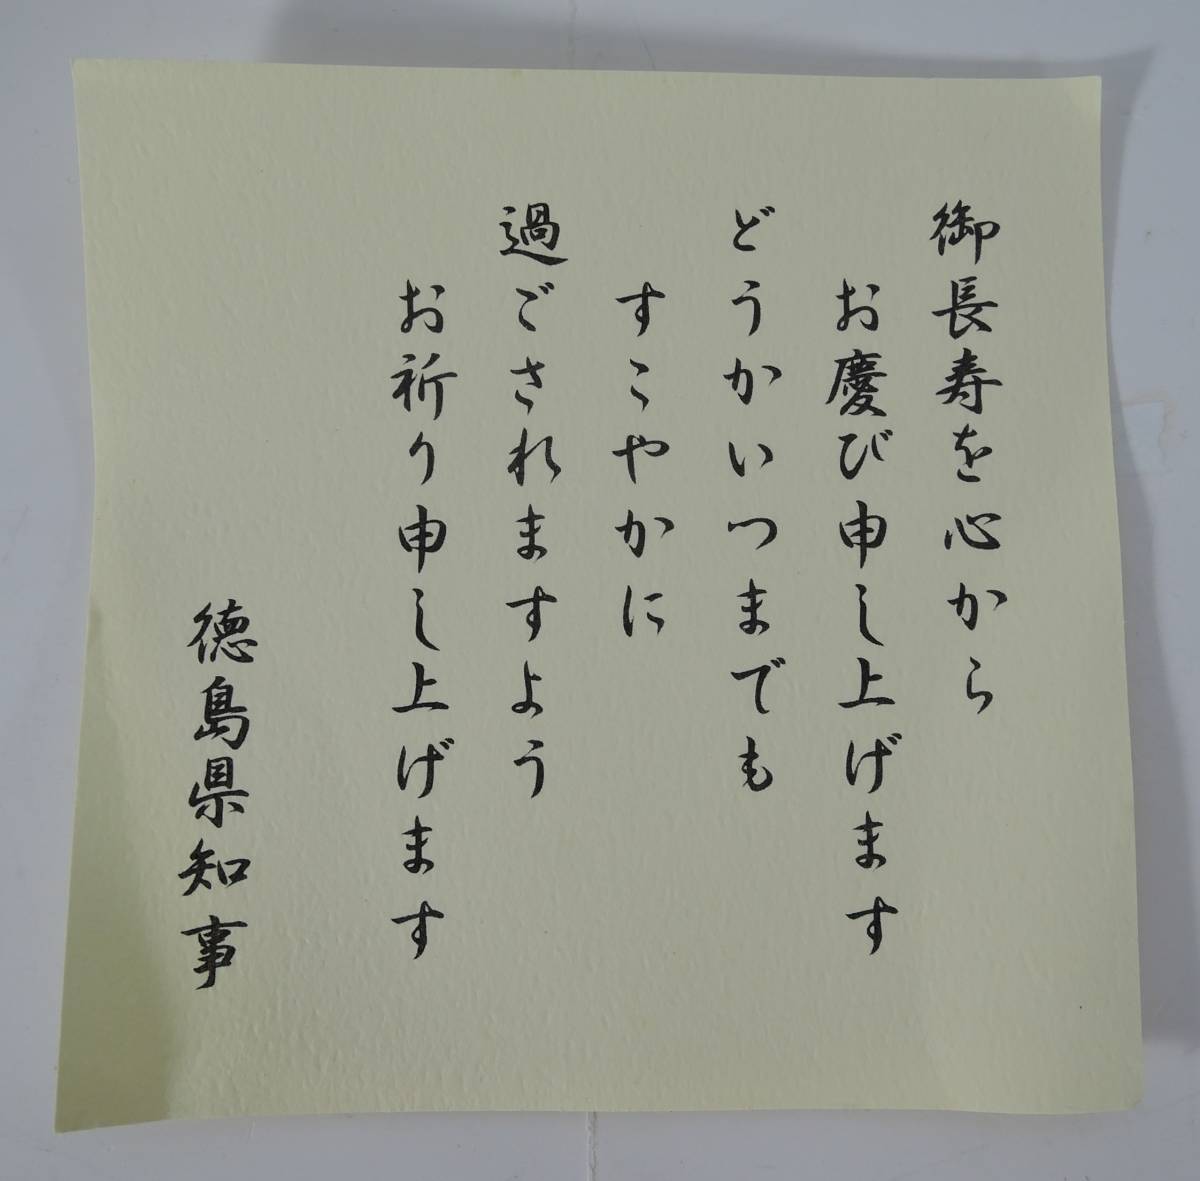 御長寿を心から
お慶び申し上げます
どうかいつまでも
すこやかに
過ごされますよう
お祈り申し上げます
徳島県知事